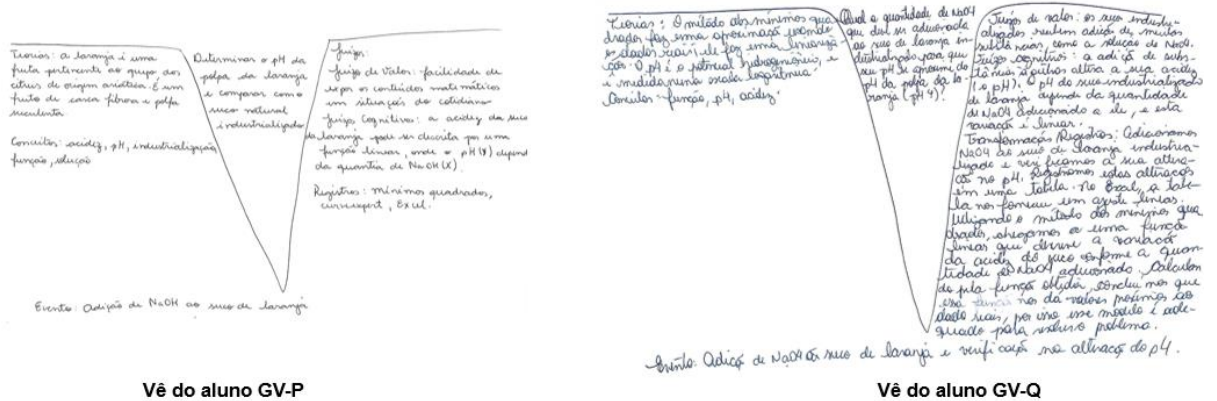 Teorias: a laranja é uma
fruta pertencente ao grupo dos
citrus de origem asiática. É um
fruto de casca fibrosa e polpa
suculenta
Conceitos: acidez, pH, industrialização,
função, solução
Determinar o pH da
polpa da laranja
e comparar com o
suco natural
industrializado
Juízos:
Juízo de Valor: facilidade de
expor os conteúdos matemáticos
em situações do cotidiano
Juízo Cognitivo: a acidez do suco
da laranja pode ser descrita por uma
função linear, onde o pH (Y) depende
da quantia de NaOH (X)
Registros: mínimos quadrados,
curve expert, Excel.
Evento: Adição de NaOH ao suco de laranja
Vê do aluno GV-P
Teorias: O método dos mínimos qua
drados faz uma aproximação usando
os dados reais, ele faz uma lineariza
ção. O pH é o potencial hidrogeniônico, e
é medido numa escala logarítmica
Conceitos - função, pH, acidez
Qual a quantidade de NaOH
que deve ser adicionada
ao suco de laranja in-
dustrializado para que
seu pH se aproxime do
pH da polpa da la-
ranja (pH 4)?
Juízos de valor: os sucos industri-
alizados recebem adição de muitas
substâncias, como a solução de NaOH.
Juízos cognitivos: a adição de subs-
tâncias à outras altera a sua acidez
(o pH). O pH do suco industrializado
de laranja depende da quantidade
de NaOH adicionado a ele, e esta
variação é linear.
Transformação/Registros: Adicionamos
NaOH ao suco de laranja industria-
lizado e verificamos a sua altera-
ção no pH. Registramos estas alterações
em uma tabela. No Excel, a tabe-
la nos forneceu um ajuste linear.
Utilizando o método dos mínimos qua
drados, chegamos a uma função
linear que descreve a variação
da acidez do suco conforme a quan
tidade de NaOH adicionado. Calculan
do pela função obtida, concluímos que
essa função nos dá valores próximos aos
dados reais, por isso esse modelo é ade-
quado para resolver o problema.
Evento: Adição de NaOH ao suco de laranja e verificação na alteração do pH.
Vê do aluno GV-Q